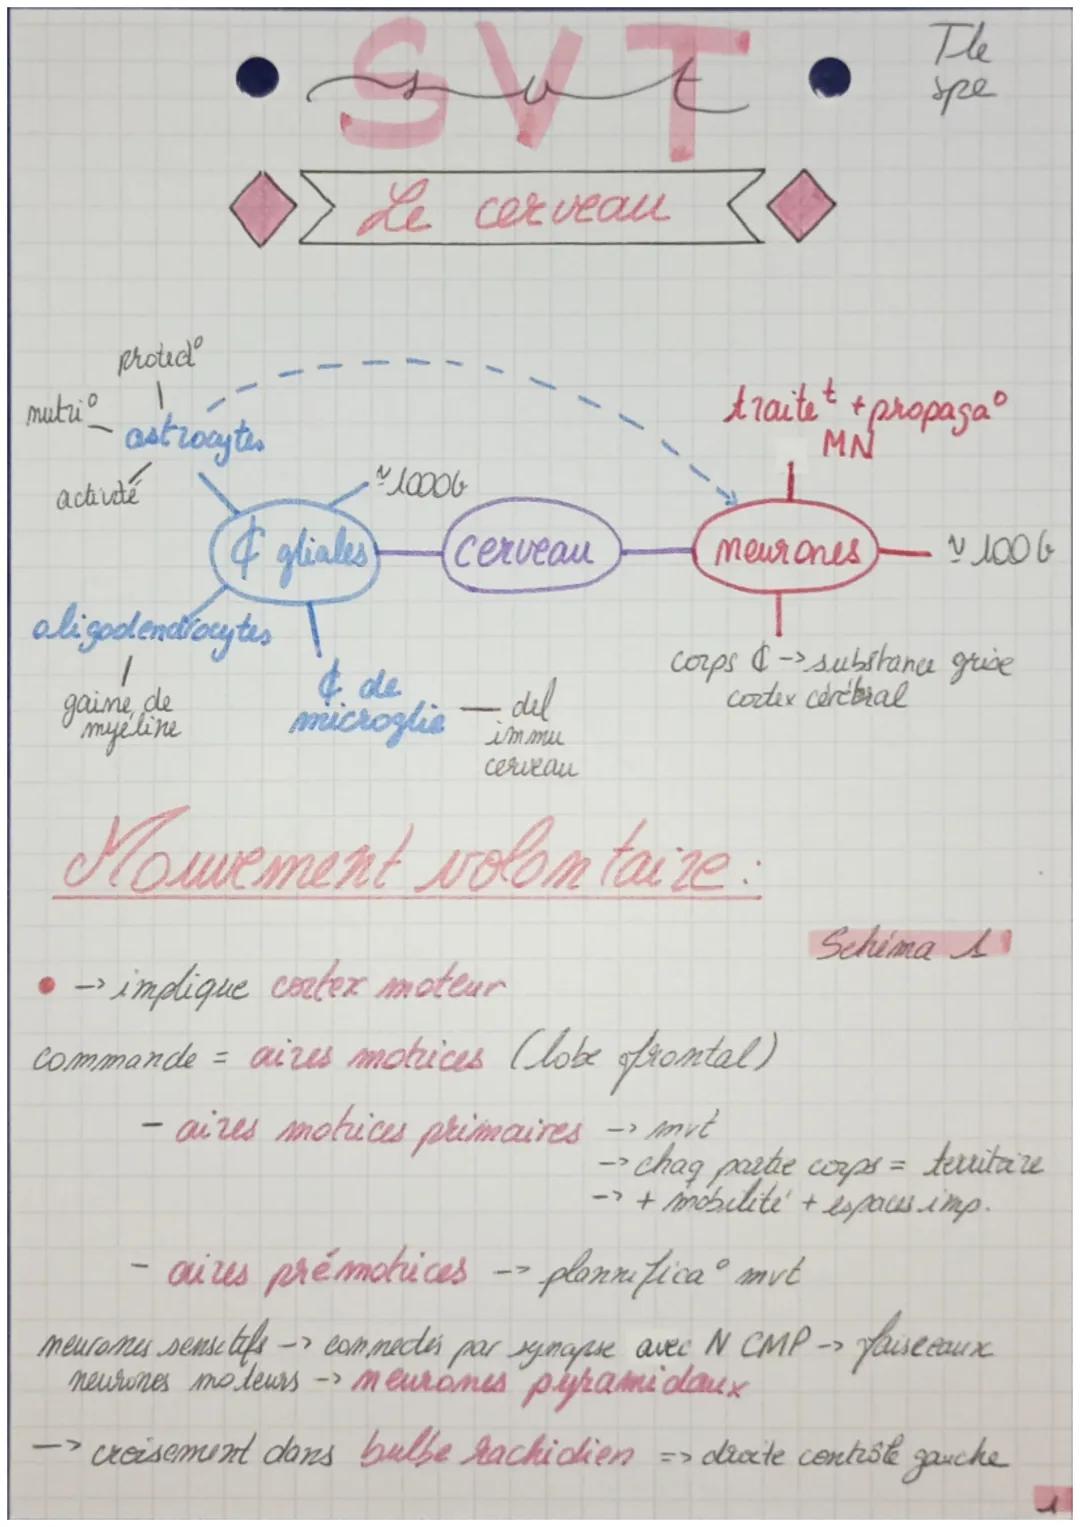 SVT
svt
Tle
spe
Le cerveau
protect°
nutri°
astrocytes
activité
traitet + propaga°
MN
~1000G
₵ gliales
cerveau
neurones
~ 100 G
oligodendrocytes
gaine de
myéline
₵ de
microglie
def
immu
cerveau
corps ₵ -> substance grise
cortex cérébral
Mouvement volontaire :
Schéma 1
• -> implique cortex moteur
commande = aires motrices (lobe frontal)
- aires motrices primaires -> mvt
-> chaq partie corps = territoire
-> + mobilité + espaces imp.
- aires prémotrices -> plannifica° mvt
neurones sensitifs -> connectés par synapse avec N CMP -> faisceaux
neurones moteurs -> neurones pyramidaux
-> croisement dans bulbe rachidien => droite contrôle gauche
1